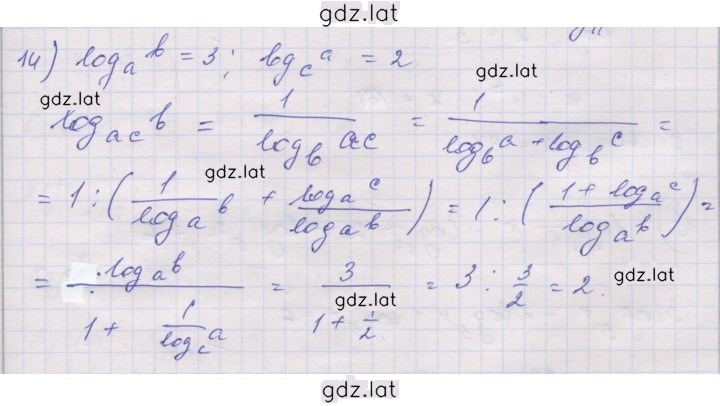 gdz.lat
14) log_a b = 3; log_c a = 2
gdz.lat
log_ac b = 1/(log_b ac) = 1/(log_b a + log_b c) =
gdz.lat
= 1 : (1/(log_a b) + (log_a c)/(log_a b)) = 1 : ((1 + log_a c)/(log_a b)) =
= (log_a b)/(1 + 1/(log_c a)) = 3/(1 + 1/2) = 3 : 3/2 = 2.
gdz.lat
gdz.lat
gdz.lat